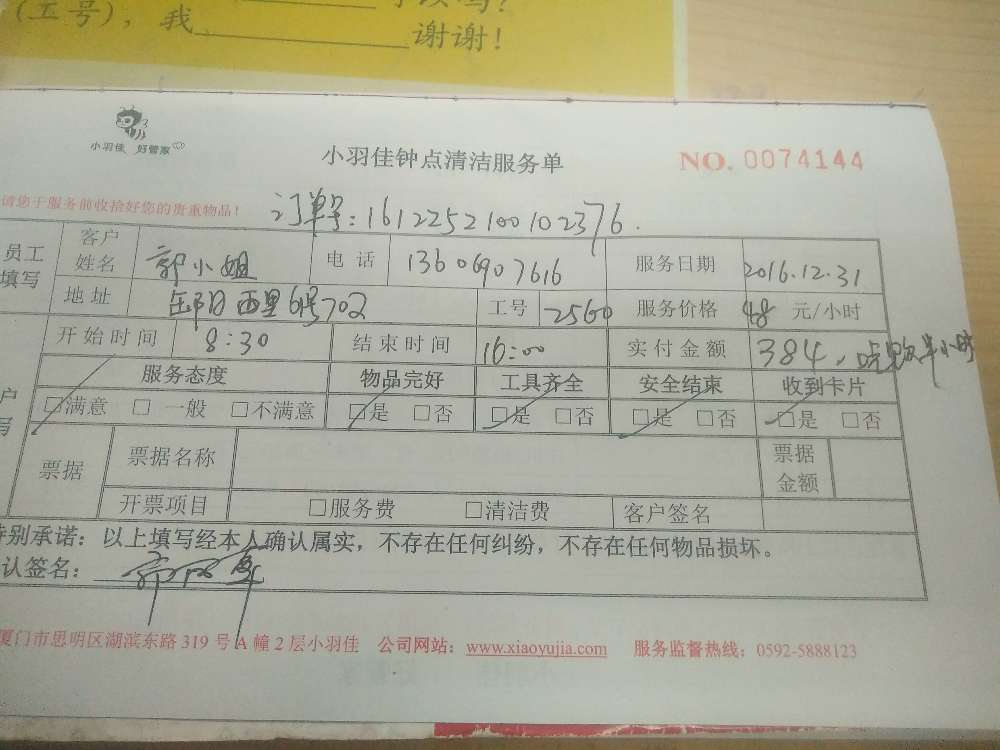 (工号)，我 谢谢！
小羽佳 好管家
小羽佳钟点清洁服务单 NO. 0074144
请您于服务前收拾好您的贵重物品！ 订单号：1612252100102376.
员工填写 客户姓名 郭小姐 电话 13606907616 服务日期 2016.12.31
地址 西里6号702 工号 2560 服务价格 48 元/小时
开始时间 8:30 结束时间 16:00 实付金额 384, 半小时
服务态度 物品完好 工具齐全 安全结束 收到卡片
□满意 □一般 □不满意 □是 □否 □是 □否 □是 □否 □是 □否
票据 票据名称 票据金额
开票项目 □服务费 □清洁费 客户签名
特别承诺：以上填写经本人确认属实，不存在任何纠纷，不存在任何物品损坏。
认签名：
厦门市思明区湖滨东路 319 号 A 幢 2 层小羽佳 公司网站：www.xiaoyujia.com 服务监督热线：0592-5888123